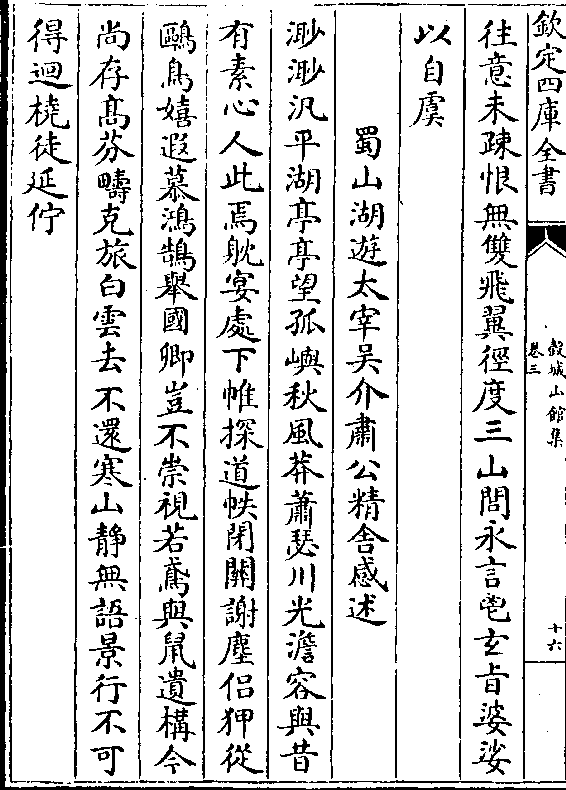 欽定四庫全書
穀城山館集
卷三
十六
往意未疎恨無雙飛翼徑度三山閭永言芼玄旨婆娑
以自虞
蜀山湖遊太宰吳介肅公精舍感述
渺渺汎平湖亭亭望孤嶼秋風莽蕭瑟川光澹容與昔
有素心人此焉躭宴處下帷探道帙閉關謝塵侣狎從
鷗鳥嬉遐慕鴻鵠舉國卿豈不崇視若鳶與鼠遺構今
尚存髙芬疇克旅白雲去不還寒山靜無語景行不可
得迴橈徒延佇